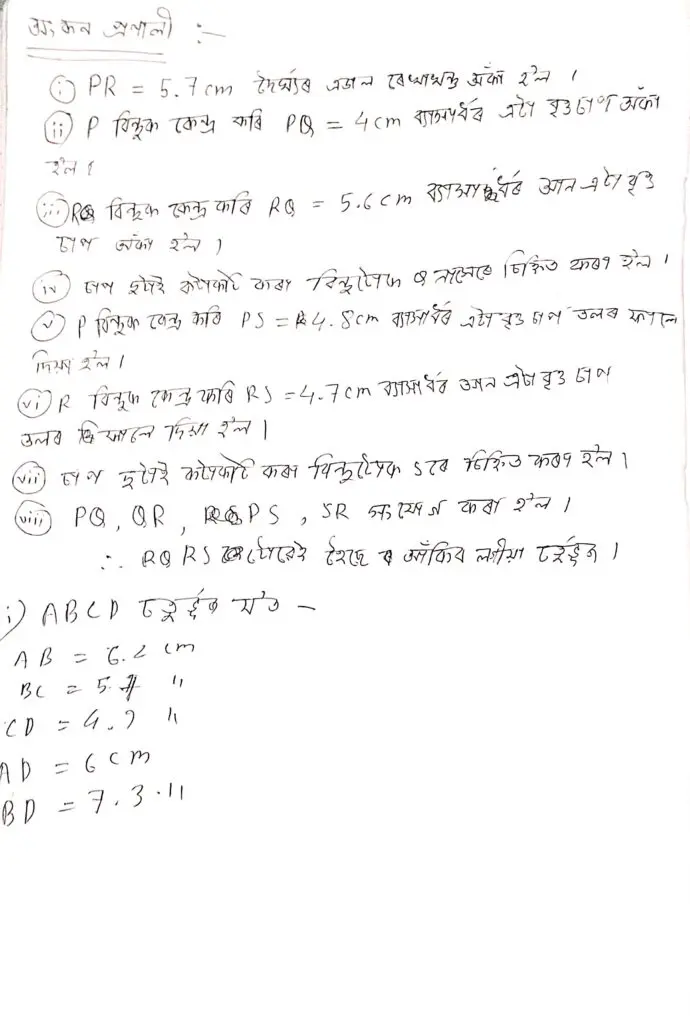 অংকন প্ৰণালী :—
(i) PR = 5.7cm দৈৰ্ঘ্যৰ এডাল ৰেখাখণ্ড অঁকা হ'ল ।
(ii) P বিন্দুক কেন্দ্ৰ কৰি PQ = 4cm ব্যাসাৰ্ধৰ এটা বৃত্ত চাপ অঁকা
হ'ল ।
(iii) R বিন্দুক কেন্দ্ৰ কৰি RQ = 5.6cm ব্যাসাৰ্ধৰ আন এটা বৃত্ত
চাপ অঁকা হ'ল ।
(iv) চাপ দুটাই কটাকটি কৰা বিন্দুটোক Q নামেৰে চিহ্নিত কৰা হ'ল ।
(v) P বিন্দুক কেন্দ্ৰ কৰি PS = 4.8cm ব্যাসাৰ্ধৰ এটা বৃত্ত চাপ তলৰ ফালে
দিয়া হ'ল ।
(vi) R বিন্দুক কেন্দ্ৰ কৰি RS = 4.7cm ব্যাসাৰ্ধৰ আন এটা বৃত্ত চাপ
তলৰ ফালে দিয়া হ'ল ।
(vii) চাপ দুটাই কটাকটি কৰা বিন্দুটোক S ৰে চিহ্নিত কৰা হ'ল ।
(viii) PQ, QR, PS, SR সংযোগ কৰা হ'ল ।
∴ PQRS হৈছে আঁকিব লগীয়া চতুৰ্ভুজ ।
i) ABCD চতুৰ্ভুজ য'ত —
AB = 6.2 cm
BC = 5.7 "
CD = 4.9 "
AD = 6cm
BD = 7.3 "